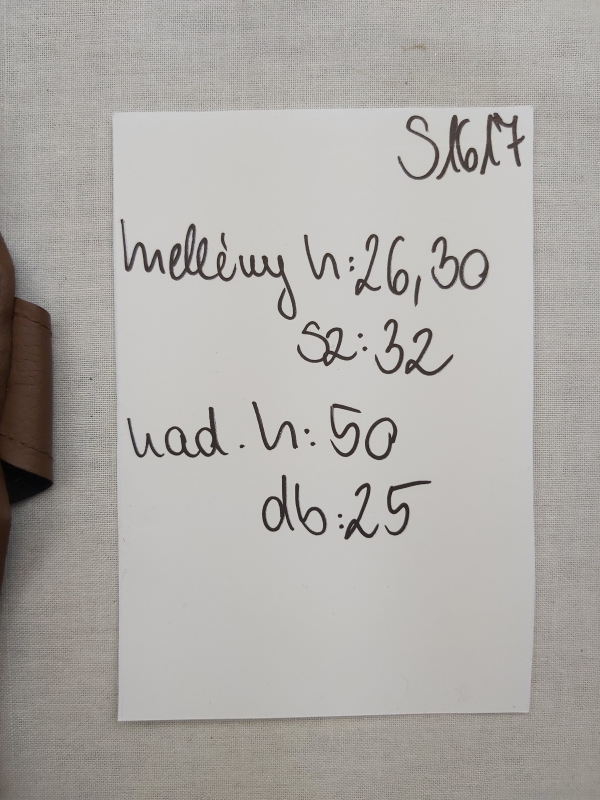 S1617
mellény h:26,30
sz:32
nad. h:50
db:25